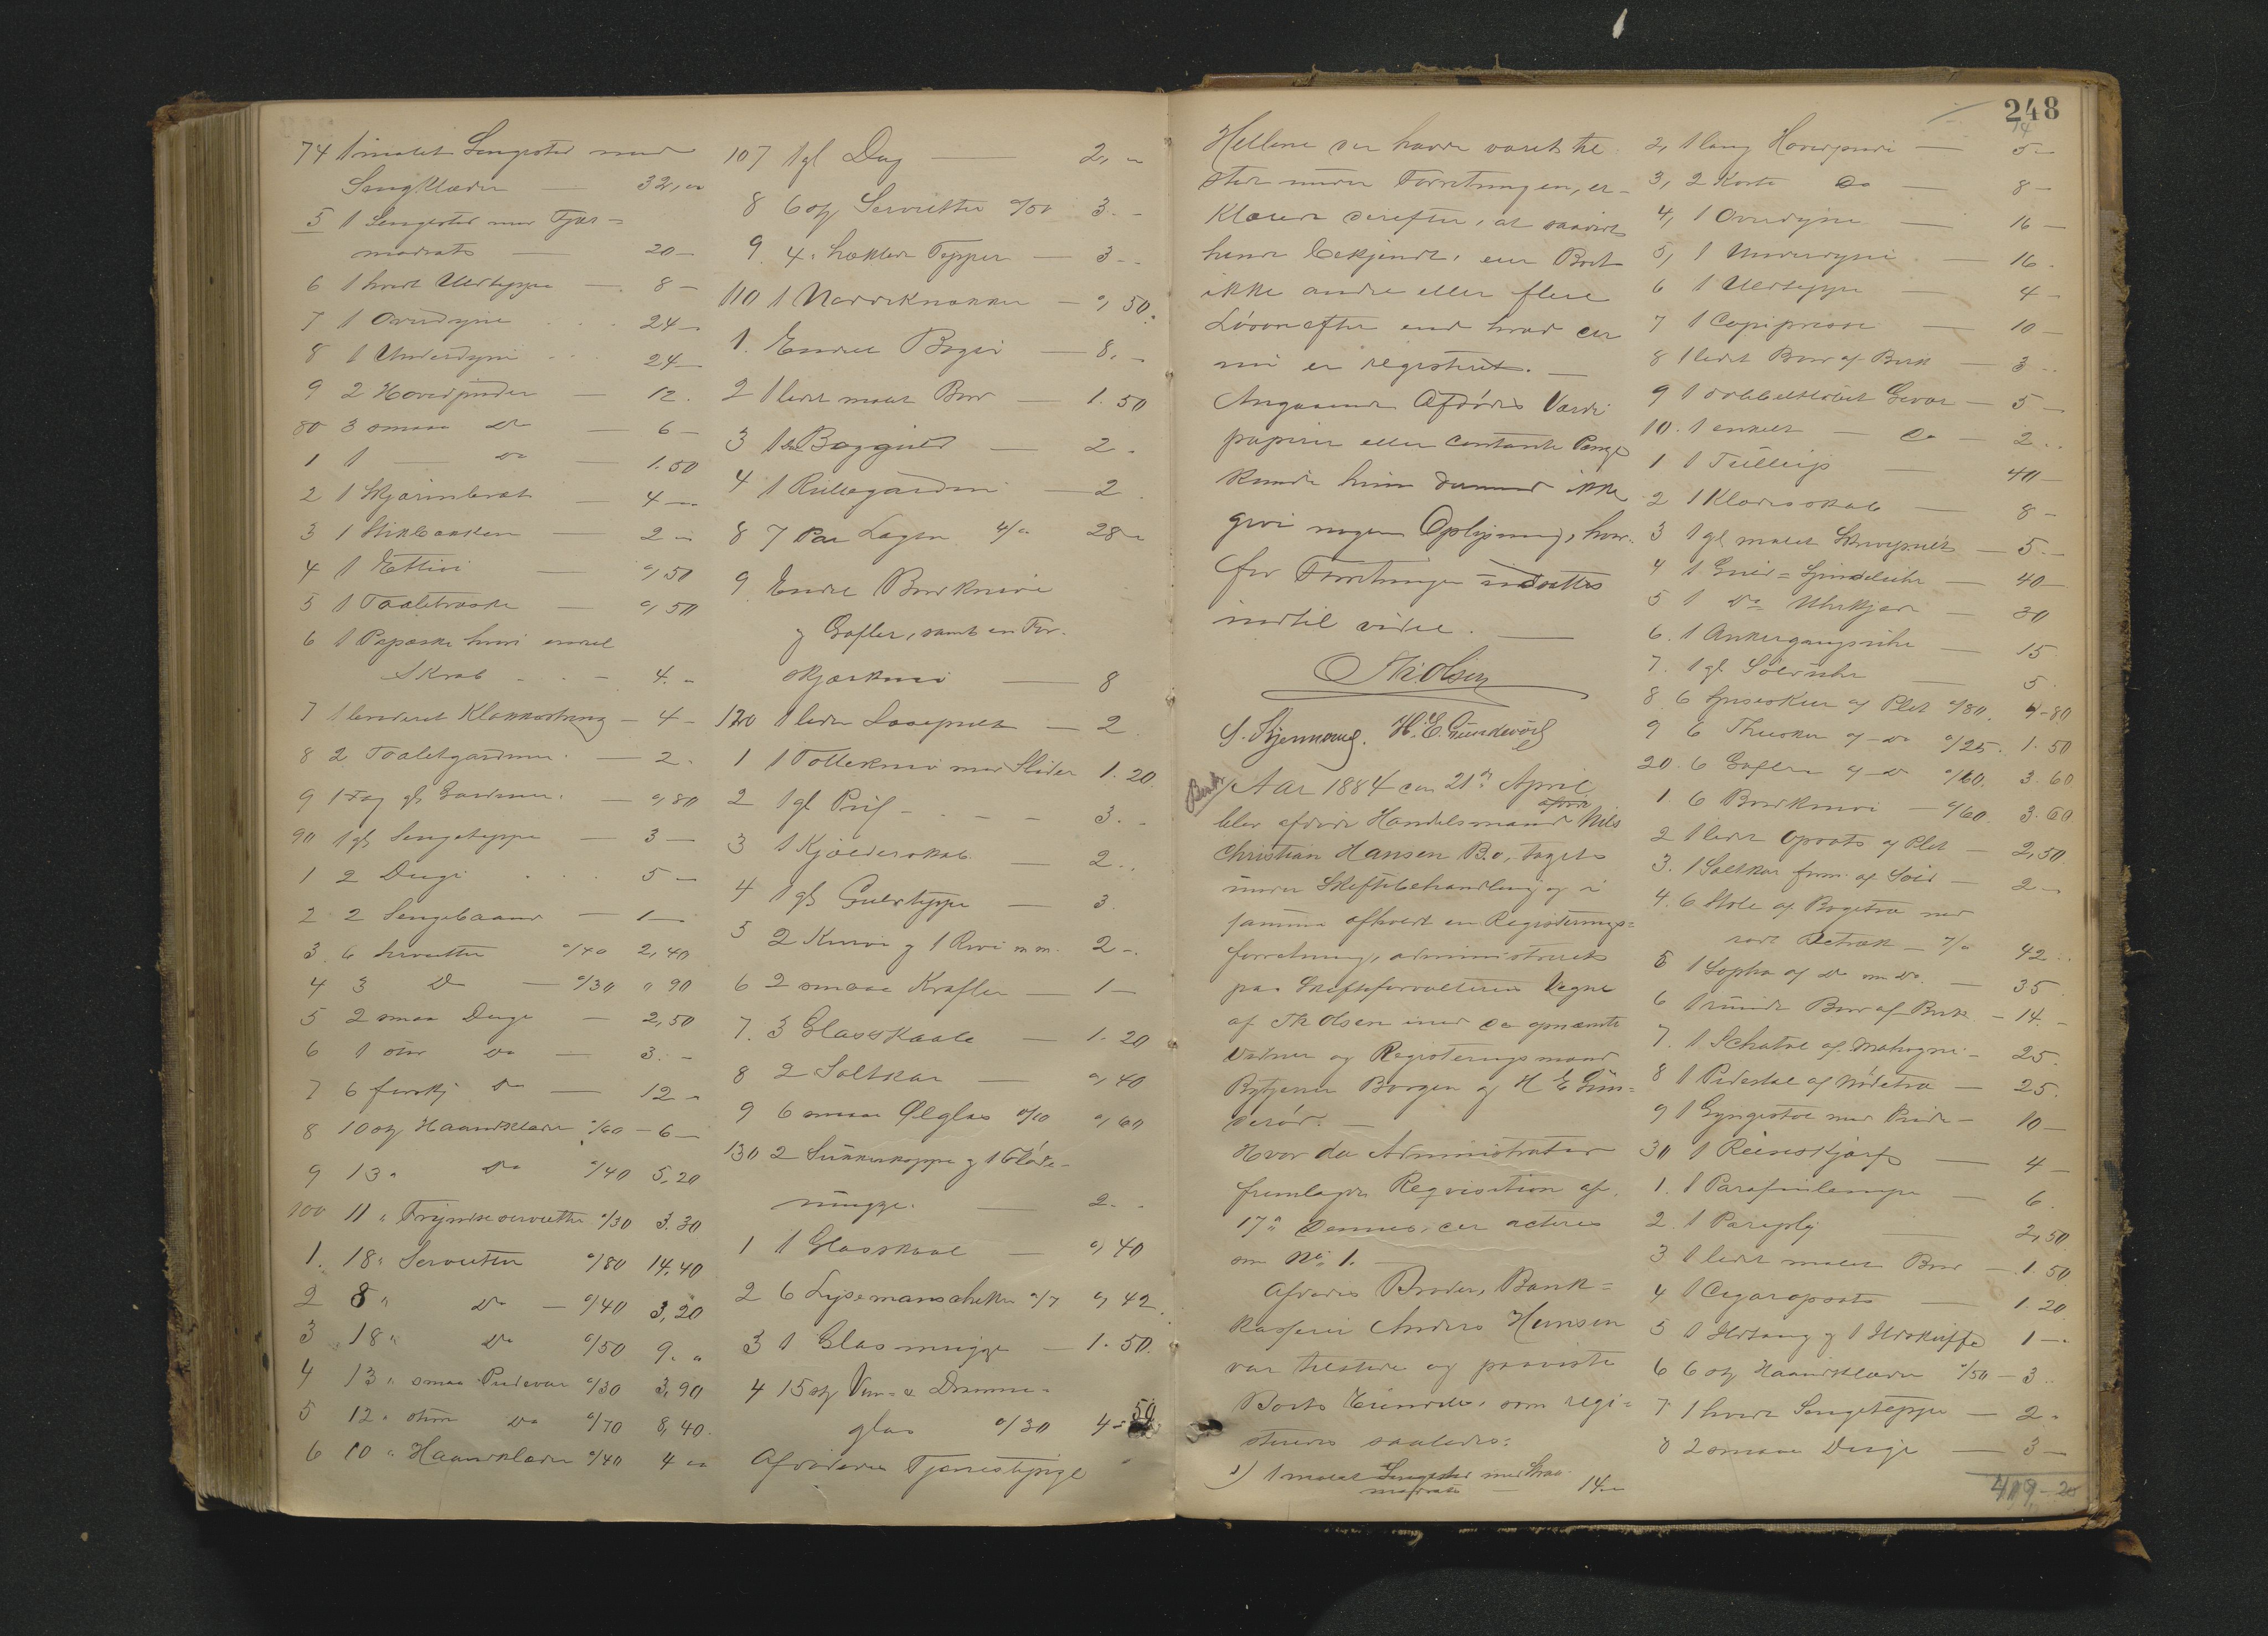 74 1 malet Sengested med
Sengklæder — 32,
5 1 Sengested med Fjær-
madrats — 20 —
6 1 hvidt Uldteppe — 8 —
7 1 Overdyne . . . 24 —
8 1 Underdyne . . . 24 —
9 2 Hovedpuder — 12.
80 3 smaa Do — 6 —
1 1 — Do — 1.50
2 1 Skjærmbræt — 4 —
3 1 — 2
4 1 — 0,50
5 1 Toiletæske — 0,50
6 1 Papæske hvori endel
Skrab - - - 4.
7 1 broderet Klokkestreng — 4 —
8 2 Toiletgardiner. — 2.
9 1 Fag gl. Gardiner. — 0,80
90 1 gl Sengeteppe — 3 —
1 2 Duge . . . 5 —
2 2 Sengebaand — 1 —
3. 6 Servietter 0/40 2,40
4 3 Do — 0/30 " 90
5 2 smaa Duge — 2,50
6 1 stor Do — 3. -
7 6 forskj Do — 12
8 10 stk Haandklæder 0/60 — 6 —
9 13 " Do 0/40 5,20
100 11 " Frynseservietter 0/30 3.30
1. 18 " Servietter 0/80 14,40
2 8 " Do — 0/40 3,20
3 18 " Do 0/50 9. "
4 13 " smaa Pudevar 0/30 3,90
5 12 " store Do 0/70 8,40.
6 10 " Haandklæder 0/40 4
107 1 gl Dug — 2,
8 6 stk Servietter 0/50 3. -
9. 4. hæklede Tepper — 3 -
110 1 Nøddeknækker — 0,50.
1. Endel Bøger — 8. -
2 1 lidet malet Bord — 1.50
3 1 — 2 -
4 1 Rullegardin — 2
8 7 Par Lagen 4/" 28
9 Endel Bordknive
og Gafler, samt en For-
skjærkniv — 8
120 1 liden — 2
1 1 Tollekniv med Slider 1.20
2 1 gl - - - 3. -
3 1 Kjælderskab — 2.
4 1 gl Gulvteppe — 3.
5 2 Kurve og 1 m.m. 2 -
6 2 smaa Krafler — 1 —
7. 3 Glasskaale — 1.20
8 2 Saltkar — 0,40
9 6 smaa Ølglas 0/10 0,60
130 2 Sukkerkopper og 1 Fløde-
mugge. — 2. -
1 1 Glasskaal — 0,40
2 6 Lysemanschetter 0/7 0,42
3 1 Glasmugge — 1.50.
4 15 stk Vin- & Dramme-
glas 0/30 4 50
Afdødes Tjenestepige
248
Hellene der havde været til
stede under Forretningen, er-
klærede derefter, at saavidt
hende bekjendt, eier Boet
ikke andre eller flere
Løsøreefter end hvad der
nu er registreret. —
Angaaende Afdødes Værdi
papirer eller contante Penge
kunde hun dermed ikke
give nogen Oplysning, hvor-
for Forretningen udsattes
indtil videre. —
Th Olsen
S. Bjerknæs. H. E. Gunderød
Aar 1884 den 21de April
blev afdøde Handelsmand Nils
Christian Hansen Bo, taget
under Skiftebehandling og i
samme afholdt en Registrerings-
forretning, administreret
paa Skifteforvalterens Vegne
af Th Olsen med de opnævnte
Vidner og Registreringsmænd
Bytjener Borgen og H E Gun-
derød. —
Hvor da Administrator
fremlagde Reqvisition af
17de dennes, der acteres
om No. 1. —
Afdødes Broder, Bank-
kasserer Anders Hansen
var tilstede og paaviste
Boets Eiendele, som regi-
streredes saaledes:
1) 1 malet Sengested med Straa
madrats — 14
2, 1 lang Hovedpude — 5 —
3, 2 korte Do — 8 —
4, 1 Overdyne — 16 —
5, 1 Underdyne — 16.
6 1 Uldteppe — 4 —
7 1 Copipresse — 10 —
8 1 lidet Bord af Birk — 3 -
9 1 dobbeltløbet Gevær — 5 —
10. 1 enkelt — Do — 2. .
1 1 — 40 —
2 1 Klædesskab — 8 -
3 1 gl malet Skrivepult — 5. —
4 1 Guld- — 40 —
5 1 Do Uhrkjede — 30
6. 1 Ankergangsuhr — 15
7. 1 gl. Sølvuhr — 5.
8 6 Spiseskeer af Plet 0/80. 4-80
9 6 Theskeer af Do 0/25. 1.50
20. 6 Gafler af Do 0/60. 3.60
1. 6 Bordknive — 0/60. 3.60
2 1 lidet Opsats af Plet — 2,50.
3. 1 Saltkar af Sølv — 2 —
4. 6 Stole af Bøgetræ med
rødt Betræk — 7/" 42
5 1 Sopha af Do m Do. — 35
6 1 rundt Bord af Birk. — 14. -
7. 1 Schatol af Mahogni — 25.
8 1 Pidestal af Nødetræ — 25.
9 1 Gyngestol med Pude — 10 —
30 1 Reiseskjærf — 4 —
1. 1 Parafinlampe — 6.
2. 1 Paraply — 2,50
3 1 lidet malet Bord — 1.50
4 1 Cigaropsats — 1.20
5 1 Ildtang og 1 Ildskuffe 1 —
6 6 stk Haandklæder 0/50 — 3. .
7 1 hvidt Sengeteppe — 2 -
8 2 smaa Duge — 3 —